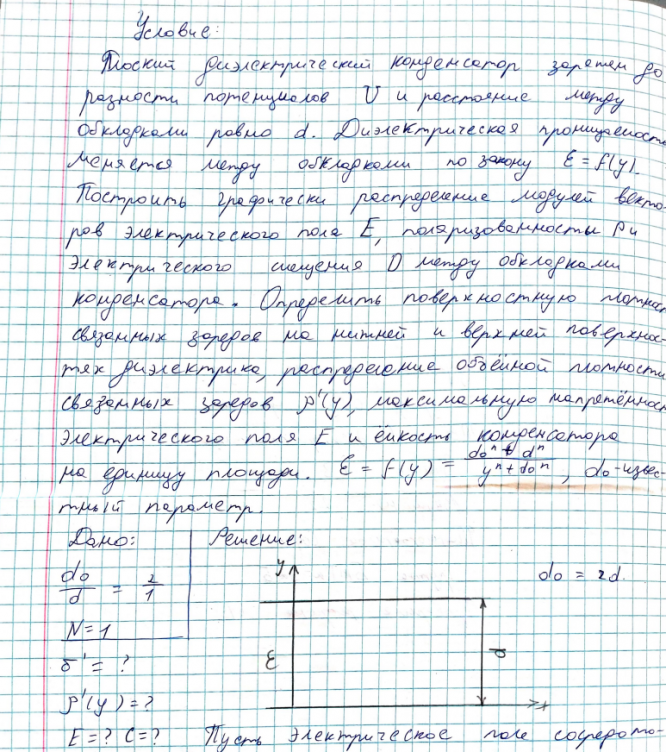 Условие:
Плоский диэлектрический конденсатор заряжен до
разности потенциалов U и расстояние между
обкладками равно d. Диэлектрическая проницаемость
меняется между обкладками по закону ε = f(y).
Построить графически распределение модулей векто-
ров электрического поля E, поляризованности P и
электрического смещения D между обкладками
конденсатора. Определить поверхностную плотность
связанных зарядов на нижней и верхней поверхнос-
тях диэлектрика, распределение объёмной плотности
связанных зарядов ρ'(y), максимальную напряжённость
электрического поля E и ёмкость конденсатора
на единицу площади. ε = f(y) = (d₀ⁿ + dⁿ)/(yⁿ + d₀ⁿ), d₀ - извес-
тный параметр.
Дано: Решение:
d₀/d = 2/1
N = 1
σ' = ?
ρ'(y) = ?
E = ? C = ?
y
d₀ = 2d
ε
d
x
Пусть электрическое поле сосредото-